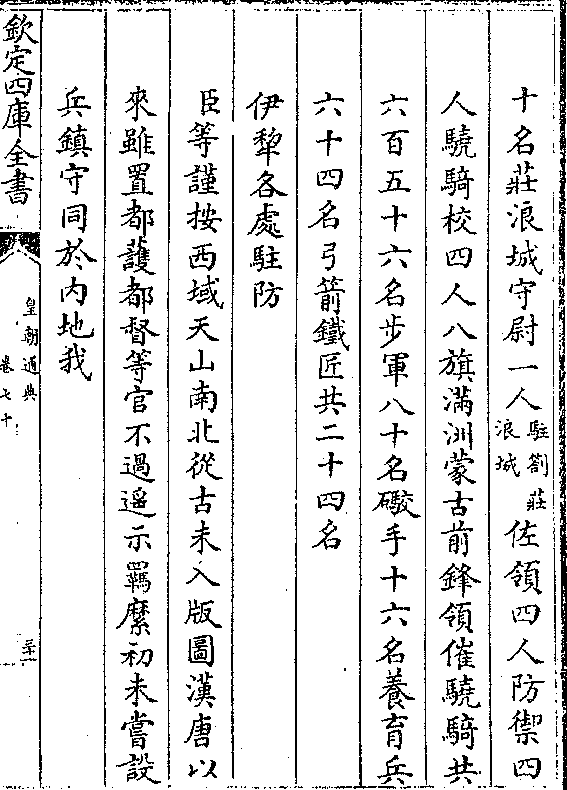 十名莊浪城守尉一人駐劄莊浪城佐領四人防禦四
人驍騎校四人八旗滿洲蒙古前鋒領催驍騎共
六百五十六名步軍八十名礮手十六名養育兵
六十四名弓箭鐵匠共二十四名
伊犂各處駐防
臣等謹按西域天山南北從古未入版圖漢唐以
來雖置都護都督等官不過遥示羈縻初未嘗設
兵鎮守同於内地我
欽定四庫全書
皇朝通典
卷七十